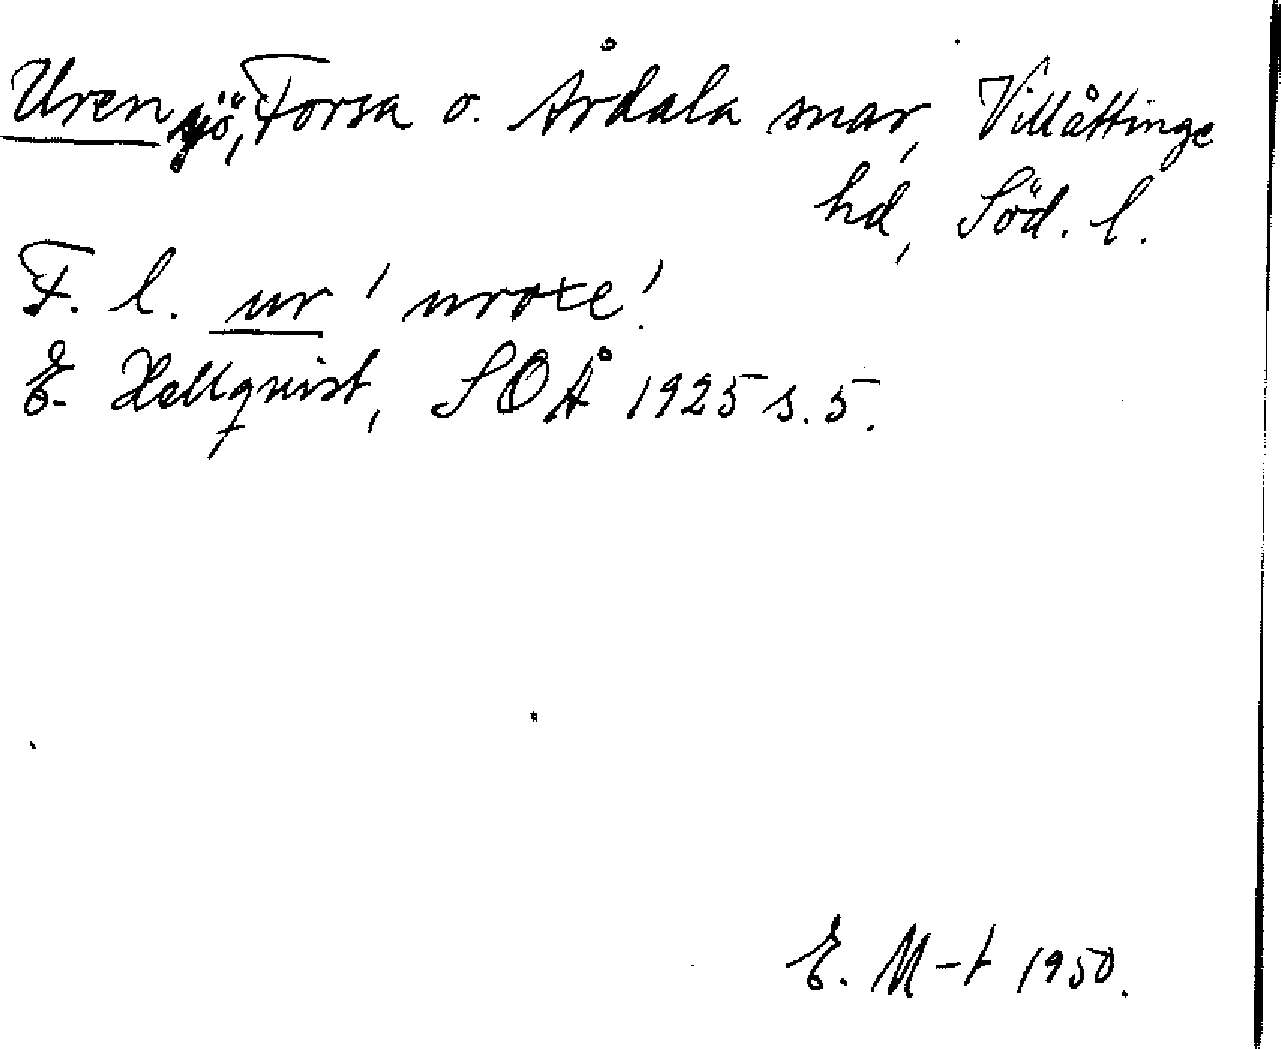 Uren sjö, Forsa o. Årdala snar, Villåttinge
hd, Söd. l.
F. l. ur 'uroxe'.
E. Hellquist, SOÅ 1925 s. 5.
E. M-t 1950.